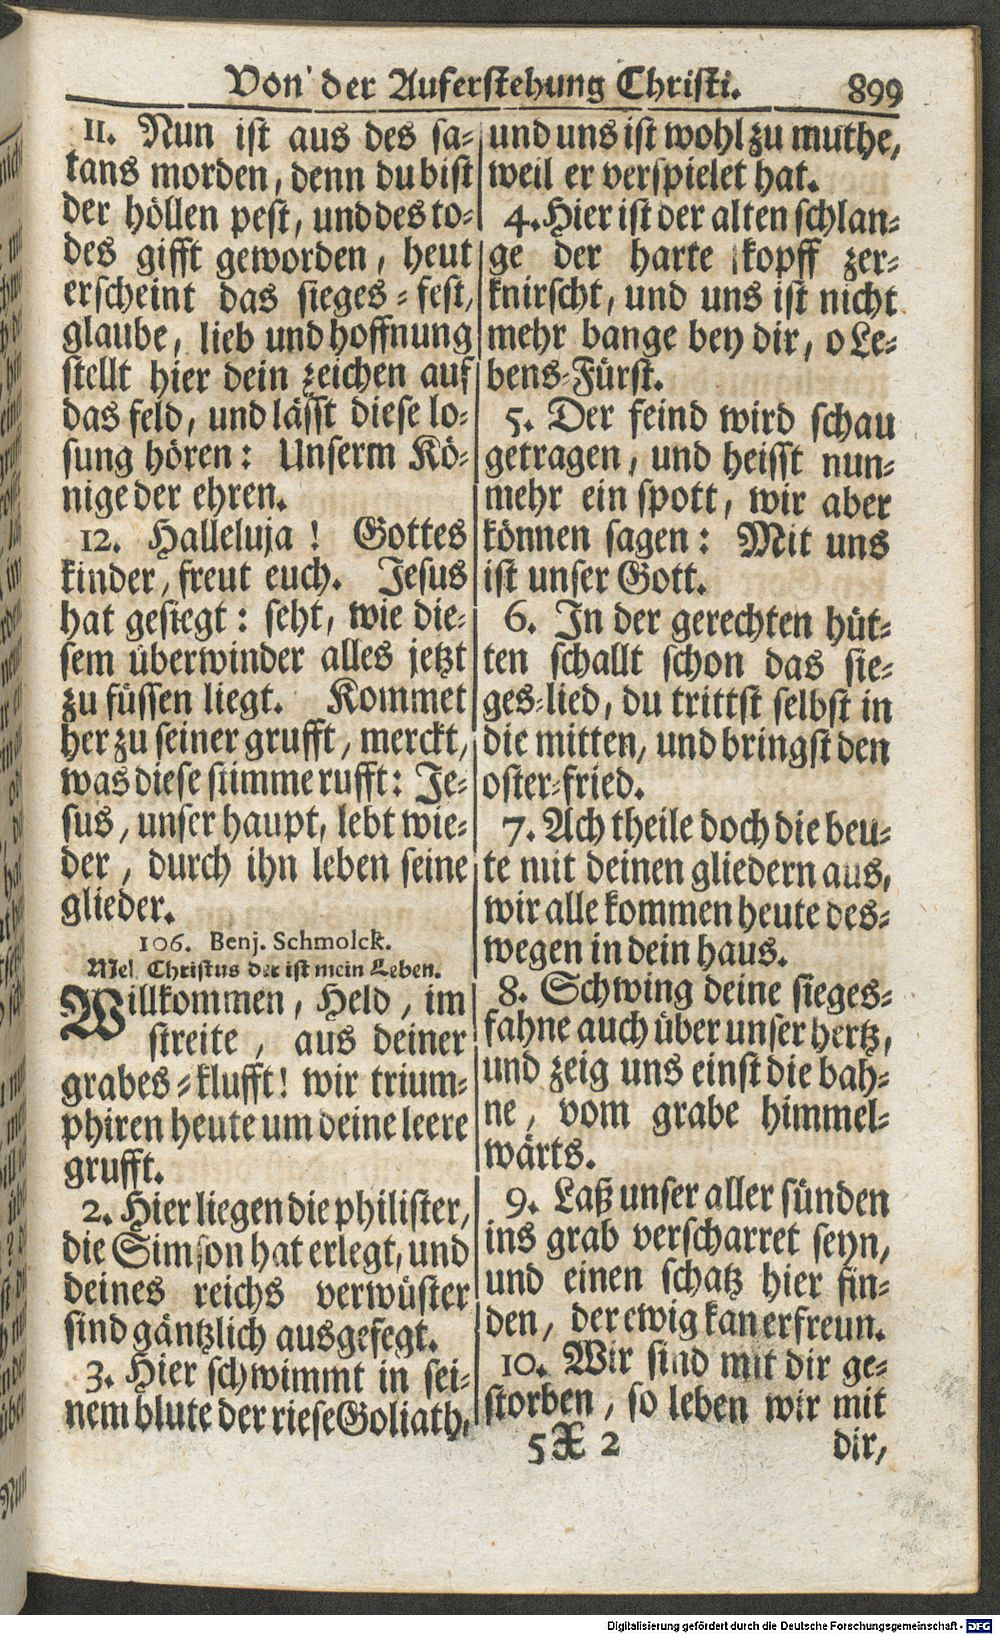 Von der Auferstehung Christi. 899
11. Nun ist aus des sa-
tans morden, denn du bist
der höllen pest, und des to-
des gifft geworden, heut
erscheint das sieges-fest,
glaube, lieb und hoffnung
stellt hier dein zeichen auf
das feld, und lässt diese lo-
sung hören: Unserm Kö-
nige der ehren.
12. Halleluja! Gottes
kinder, freut euch. Jesus
hat gesiegt: seht, wie die-
sem überwinder alles jetzt
zu füssen liegt. Kommet
her zu seiner grufft, merckt,
was diese stimme rufft: Je-
sus, unser haupt, lebt wie-
der, durch ihn leben seine
glieder.
106. Benj. Schmolck.
Mel. Christus der ist mein Leben.
Willkommen, Held, im
streite, aus deiner
grabes-klufft! wir trium-
phiren heute um deine leere
grufft.
2. Hier liegen die philister,
die Simson hat erlegt, und
deines reichs verwüster
sind gäntzlich ausgefegt.
3. Hier schwimmt in sei-
nem blute der riese Goliath,
und uns ist wohl zu muthe,
weil er verspielet hat.
4. Hier ist der alten schlan-
ge der harte kopff zer-
knirscht, und uns ist nicht
mehr bange bey dir, o Le-
bens-Fürst.
5. Der feind wird schau
getragen, und heisst nun-
mehr ein spott, wir aber
können sagen: Mit uns
ist unser Gott.
6. In der gerechten hüt-
ten schallt schon das sie-
ges-lied, du trittst selbst in
die mitten, und bringst den
oster-fried.
7. Ach theile doch die beu-
te mit deinen gliedern aus,
wir alle kommen heute des-
wegen in dein haus.
8. Schwing deine sieges-
fahne auch über unser hertz,
und zeig uns einst die bah-
ne, vom grabe himmel-
wärts.
9. Laß unser aller sünden
ins grab verscharret seyn,
und einen schatz hier fin-
den, der ewig kan erfreun.
10. Wir sind mit dir ge-
storben, so leben wir mit
5X 2 dir,
Digitalisierung gefördert durch die Deutsche Forschungsgemeinschaft - DFG